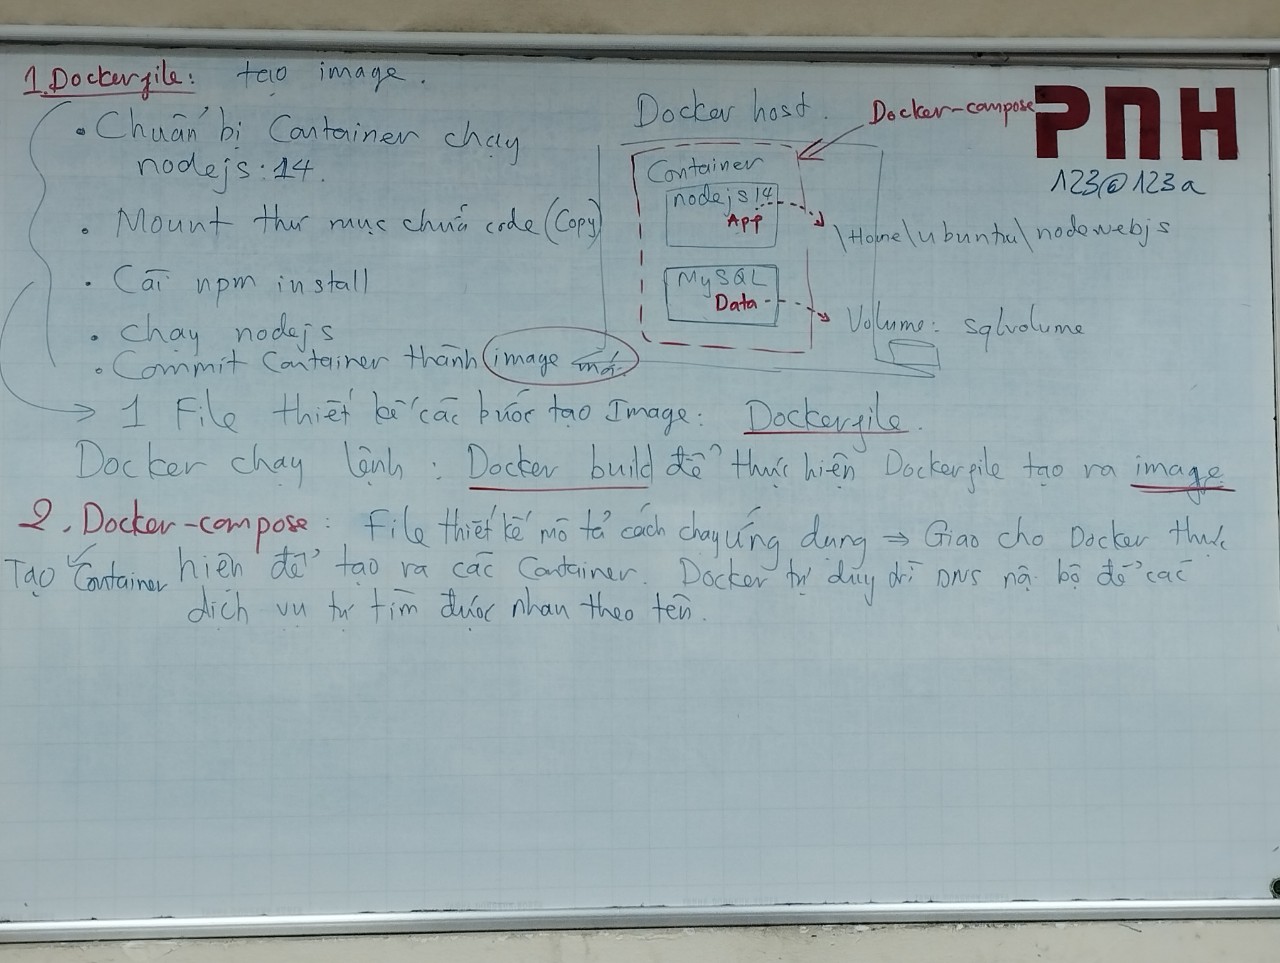 1. Dockerfile: tạo image.
• Chuẩn bị Container chạy
nodejs:14.
• Mount thư mục chứa code (Copy)
• Cài npm install
• chạy nodejs
• Commit Container thành image mới.
→ 1 File thiết kế các bước tạo Image: Dockerfile.
Docker chạy lệnh: Docker build để thực hiện Dockerfile tạo ra image
Docker host.
Docker-compose
Container
nodejs14
App
\Home\ubuntu\nodewebjs
MySQL
Data
Volume: sqlvolume
PNH
123@123a
2. Docker-compose: File thiết kế mô tả cách chạy ứng dụng ⇒ Giao cho Docker thực
Tạo Container
hiện để tạo ra các Container. Docker tự duy trì DNS nộ bộ để các
dịch vụ tự tìm được nhau theo tên.